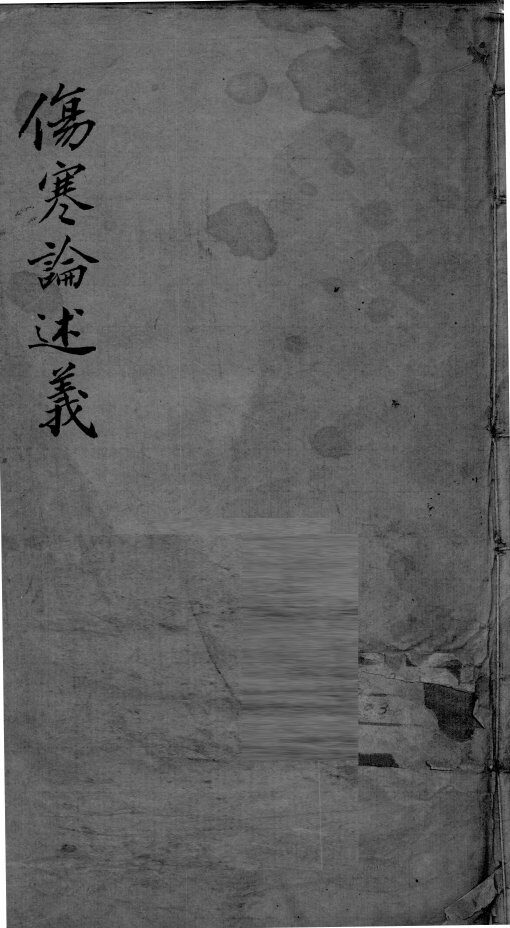 傷寒論述義
03